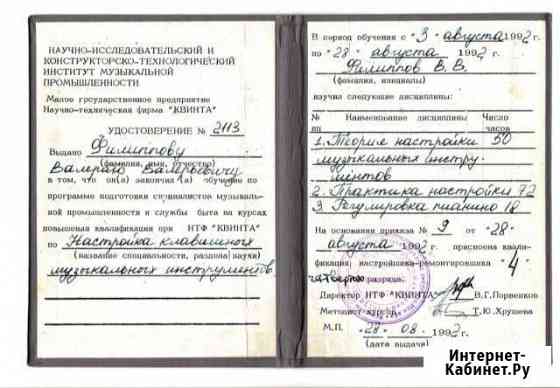 НАУЧНО-ИССЛЕДОВАТЕЛЬСКИЙ И
КОНСТРУКТОРСКО-ТЕХНОЛОГИЧЕСКИЙ
ИНСТИТУТ МУЗЫКАЛЬНОЙ
ПРОМЫШЛЕННОСТИ
Малое государственное предприятие
Научно-техническая фирма "КВИНТА"
УДОСТОВЕРЕНИЕ № 2113
Выдано Филиппову
(фамилия, имя, отчество)
Валерию Валерьевичу
в том, что он(а) закончил(а) обучение по
программе подготовки специалистов музыкаль-
ной промышленности и службы быта на курсах
повышения квалификации при НТФ "КВИНТА"
по Настройка клавишных
(название специальности, раздела науки)
музыкальных инструментов
В период обучения с "3" августа 1992 г.
по "28" августа 1992 г.
Филиппов В. В.
(фамилия, инициалы)
изучил следующие дисциплины:
№ Наименование дисциплины Число
пп часов
1. Теория настройки 50
музыкальных инстру-
ментов
2. Практика настройки 72
3. Регулировка пианино 18
На основании приказа № 9 от "28"
августа 1992 г. присвоена квали-
фикация настройщика-ремонтировщика "4"
четвертого разряда.
Директор НТФ "КВИНТА" В.Г.Порвенков
Методист курсов Т.Ю.Хрущева
М.П. "28" 08 1992 г.
(дата выдачи)
Интернет-
Кабинет.Ру